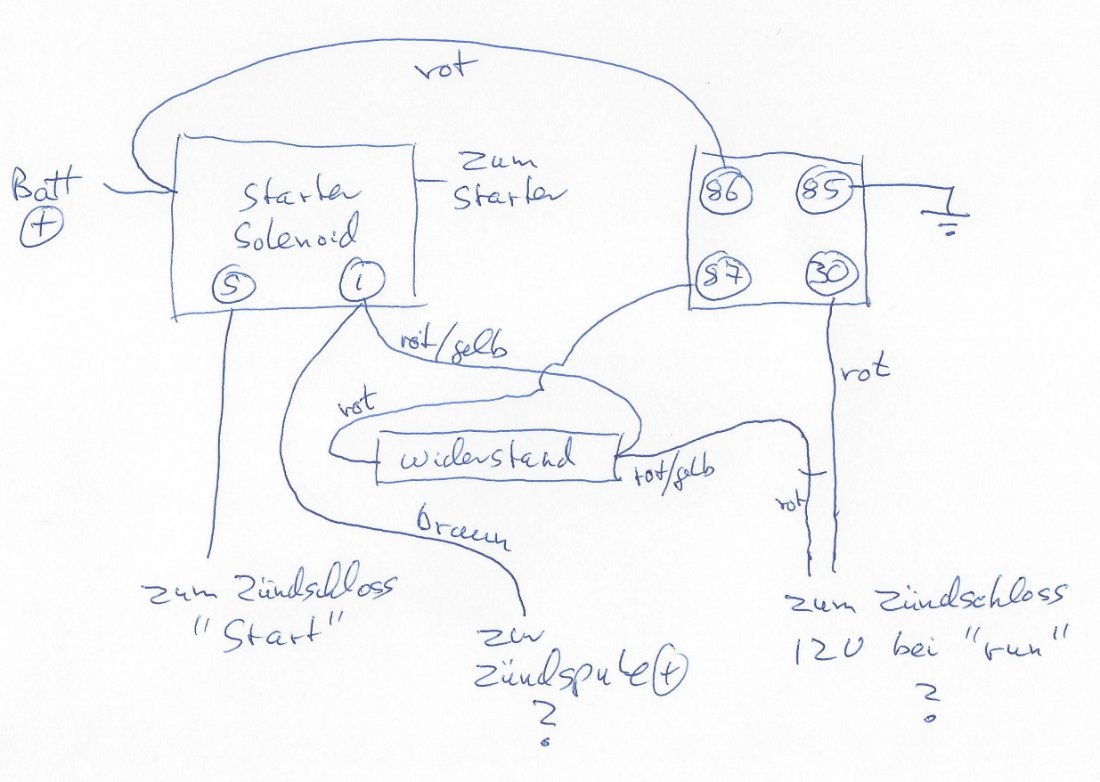 rot
Batt
+
Starter
Solenoid
S
I
zum
Starter
86
85
87
30
rot/gelb
rot
rot
Widerstand
rot/gelb
rot
braun
zum Zündschloss
"Start"
zur
Zündspule +
?
zum Zündschloss
12V bei "run"
?